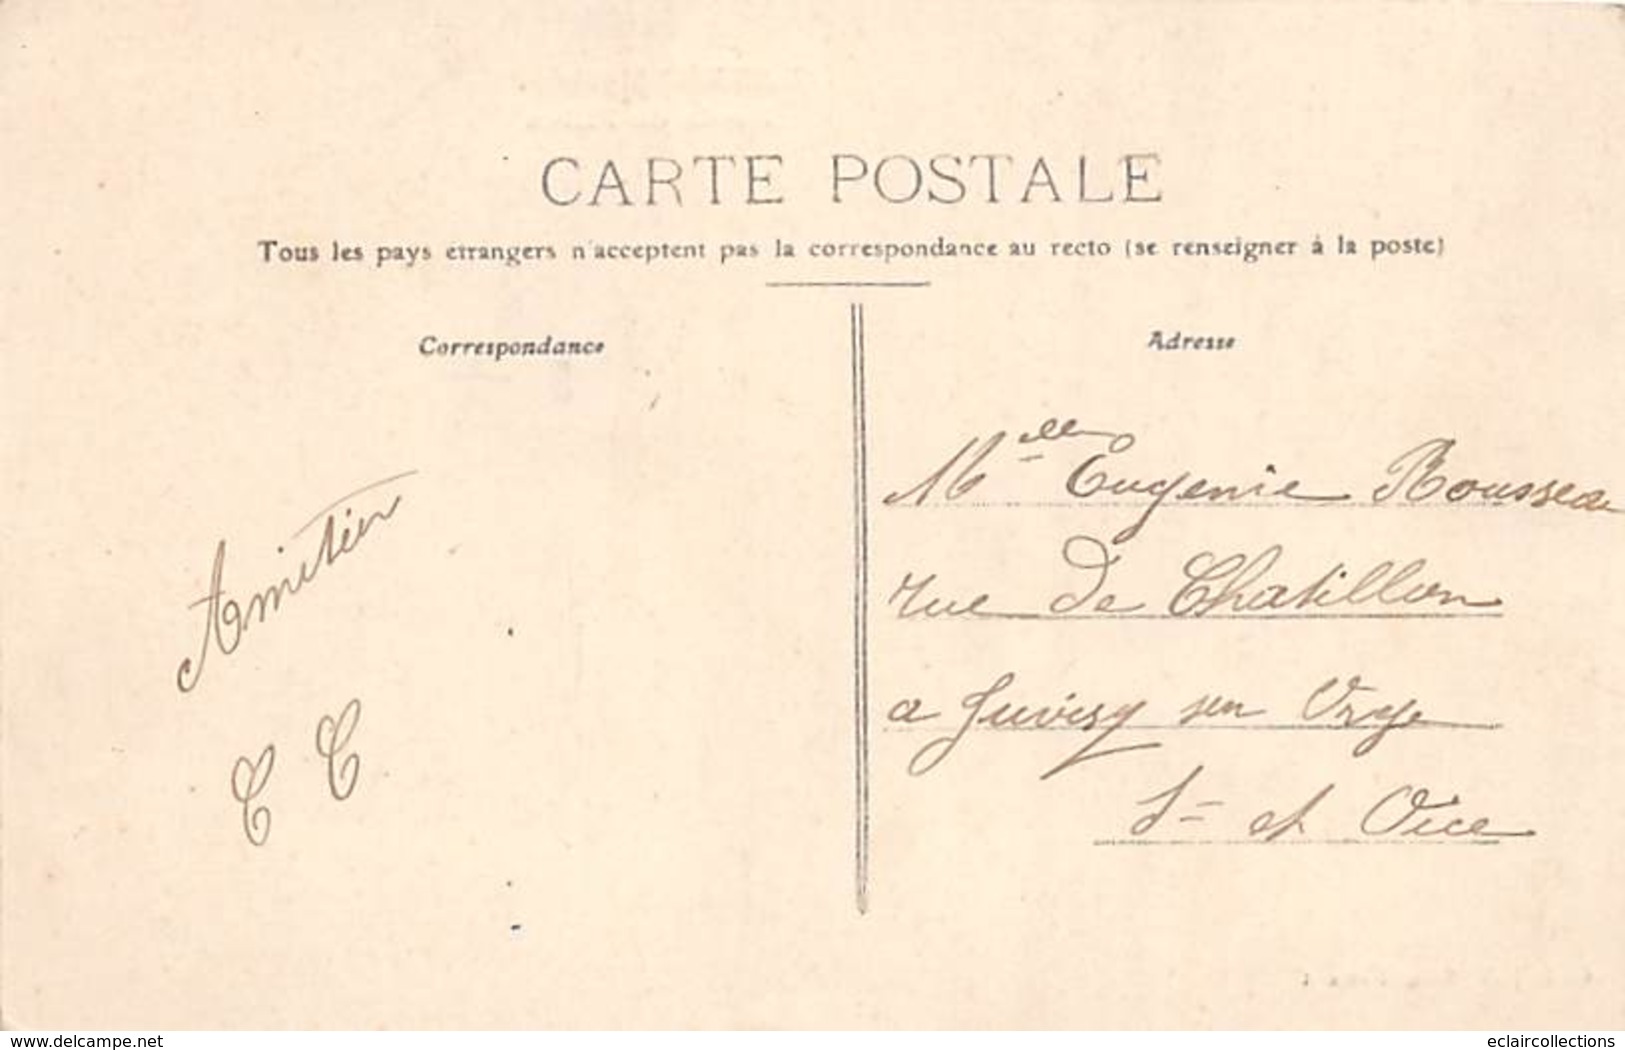 CARTE POSTALE
Tous les pays étrangers n'acceptent pas la correspondance au recto (se renseigner à la poste)
Correspondance
Adresse
Mlle Eugenie Rousseau
rue de Chatillon
a Juvisy sur Orge
S- et Oise
Amitiés
C C
www.delcampe.net
eclaircollections